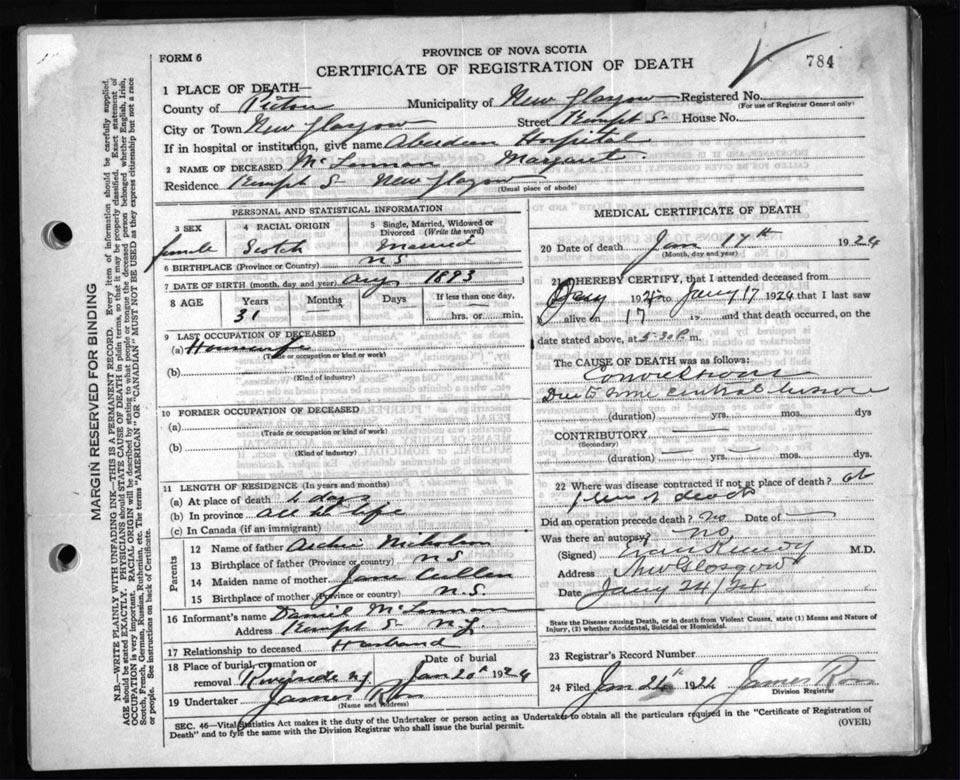 FORM 6
PROVINCE OF NOVA SCOTIA
784
CERTIFICATE OF REGISTRATION OF DEATH
1 PLACE OF DEATH—
County of Pictou Municipality of New Glasgow Registered No.
(For use of Registrar General only)
City or Town New Glasgow Street Kempt S. House No.
If in hospital or institution, give name Aberdeen Hospital
2 NAME OF DECEASED McLennan Margaret.
Residence Kempt S New Glasgow
(Usual place of abode)
PERSONAL AND STATISTICAL INFORMATION
3 SEX 4 RACIAL ORIGIN 5 Single, Married, Widowed or Divorced (Write the word)
female Scotch Married
6 BIRTHPLACE (Province or Country) N S
7 DATE OF BIRTH (month, day, and year) Aug 1893
8 AGE Years Months Days If less than one day,
31 hrs. or min.
9 LAST OCCUPATION OF DECEASED
(a) Housewife
(Trade or occupation or kind or work)
(b)
(Kind of industry)
10 FORMER OCCUPATION OF DECEASED
(a)
(Trade or occupation or kind of work)
(b)
(Kind of industry)
11 LENGTH OF RESIDENCE (In years and months)
(a) At place of death days
(b) In province all life
(c) In Canada (if an immigrant)
Parents
12 Name of father Archie Nicholson
13 Birthplace of father (Province or country) N S
14 Maiden name of mother Jane Cullen
15 Birthplace of mother (Province or country) N.S.
16 Informant's name Daniel McLennan
Address Kempt S N.G.
17 Relationship to deceased Husband
18 Place of burial, cremation or removal Riverside N.G. Date of burial Jan 20 1924
19 Undertaker James Ross
(Name and Address)
MEDICAL CERTIFICATE OF DEATH
20 Date of death Jan 17th 1924
(Month, day and year)
21 I HEREBY CERTIFY, that I attended deceased from
Jany 192 to Jany 17 1924 that I last saw
alive on 17 19 and that death occurred, on the
date stated above, at 5.30 P. m.
The CAUSE OF DEATH was as follows:
Convulsions
Due to some central lesion
(duration) yrs. mos. dys
CONTRIBUTORY
(Secondary)
(duration) yrs. mos. dys.
22 Where was disease contracted if not at place of death? at
place of death
Did an operation precede death? no Date of
Was there an autopsy? no
(Signed) Evan Kennedy M.D.
Address New Glasgow
Date Jany 24/24
State the Disease causing Death, or in death from Violent Causes, state (1) Means and Nature of Injury, (2) whether Accidental, Suicidal or Homicidal.
23 Registrar's Record Number
24 Filed Jan 24th 1924 James Ross
Division Registrar
SEC. 46—Vital Statistics Act makes it the duty of the Undertaker or person acting as Undertaker to obtain all the particulars required in the "Certificate of Registration of
Death" and to fyle the same with the Division Registrar who shall issue the burial permit.
(OVER)
MARGIN RESERVED FOR BINDING
N.B.—WRITE PLAINLY WITH UNFADING INK—THIS IS A PERMANENT RECORD. Every item of information should be carefully supplied.
AGE should be stated EXACTLY. PHYSICIANS should STATE CAUSE OF DEATH in plain terms, so that it may be properly classified. Exact statement of
OCCUPATION is very important. RACIAL ORIGIN will be described by stating to what people or tongue the deceased person belonged whether English, Irish,
Scotch, French, German, Russian, Ruthenian, etc. The terms "AMERICAN" or "CANADIAN" MUST NOT BE USED as they express citizenship but not a race
or people. See instructions on back of Certificate.